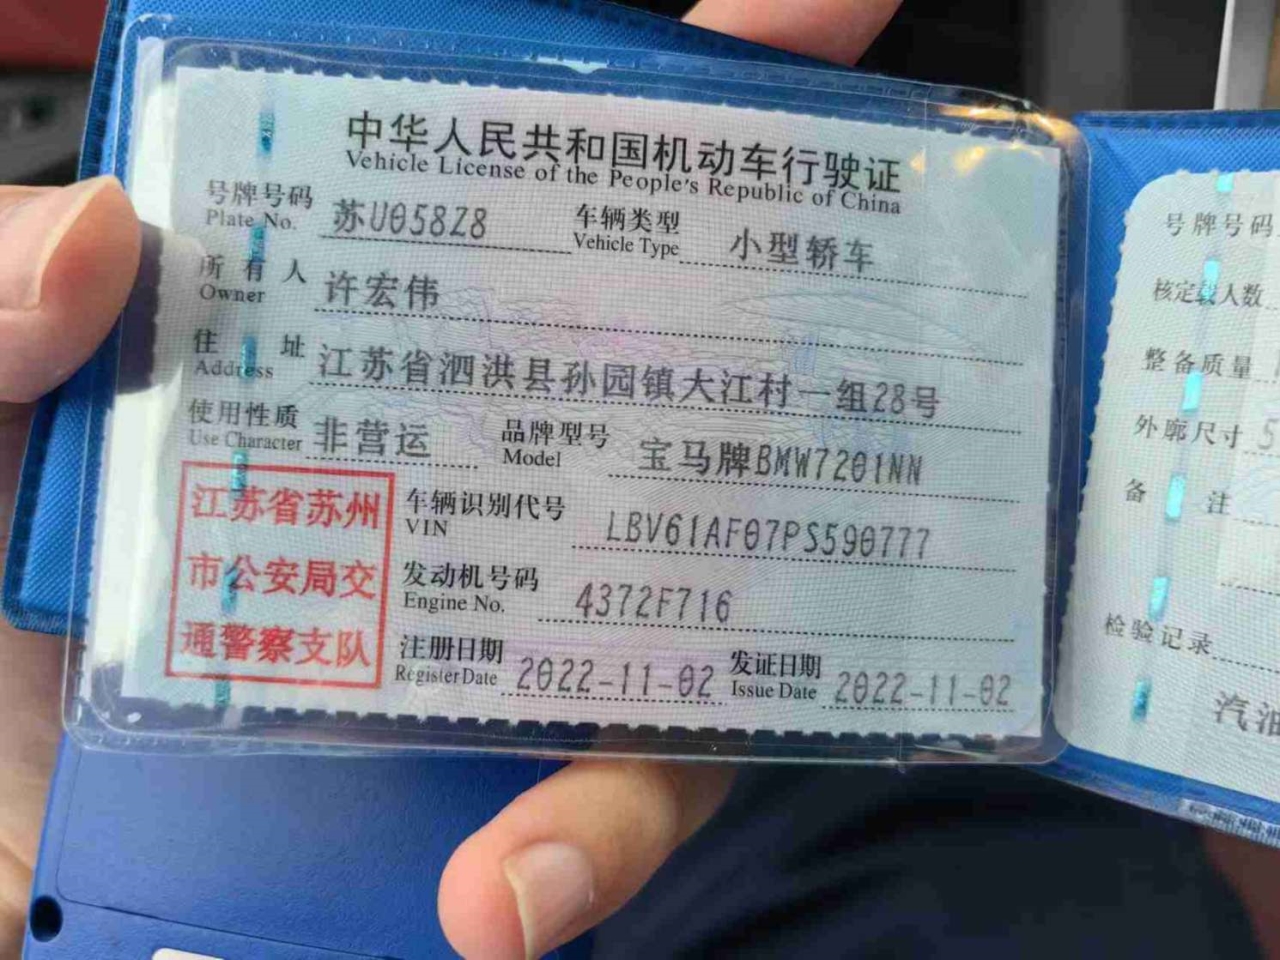 中华人民共和国机动车行驶证
Vehicle License of the People's Republic of China
号牌号码 苏U058Z8 车辆类型 小型轿车
Plate No. Vehicle Type
所有人 许宏伟
Owner
住址 江苏省泗洪县孙园镇大江村一组28号
Address
使用性质 非营运 品牌型号 宝马牌BMW7201NN
Use Character Model
江苏省苏州
市公安局交
通警察支队
车辆识别代号 LBV61AF07PS590777
VIN
发动机号码 4372F716
Engine No.
注册日期 2022-11-02 发证日期 2022-11-02
Register Date Issue Date
号牌号码
核定载人数
整备质量
外廓尺寸 5
备注
检验记录
汽油